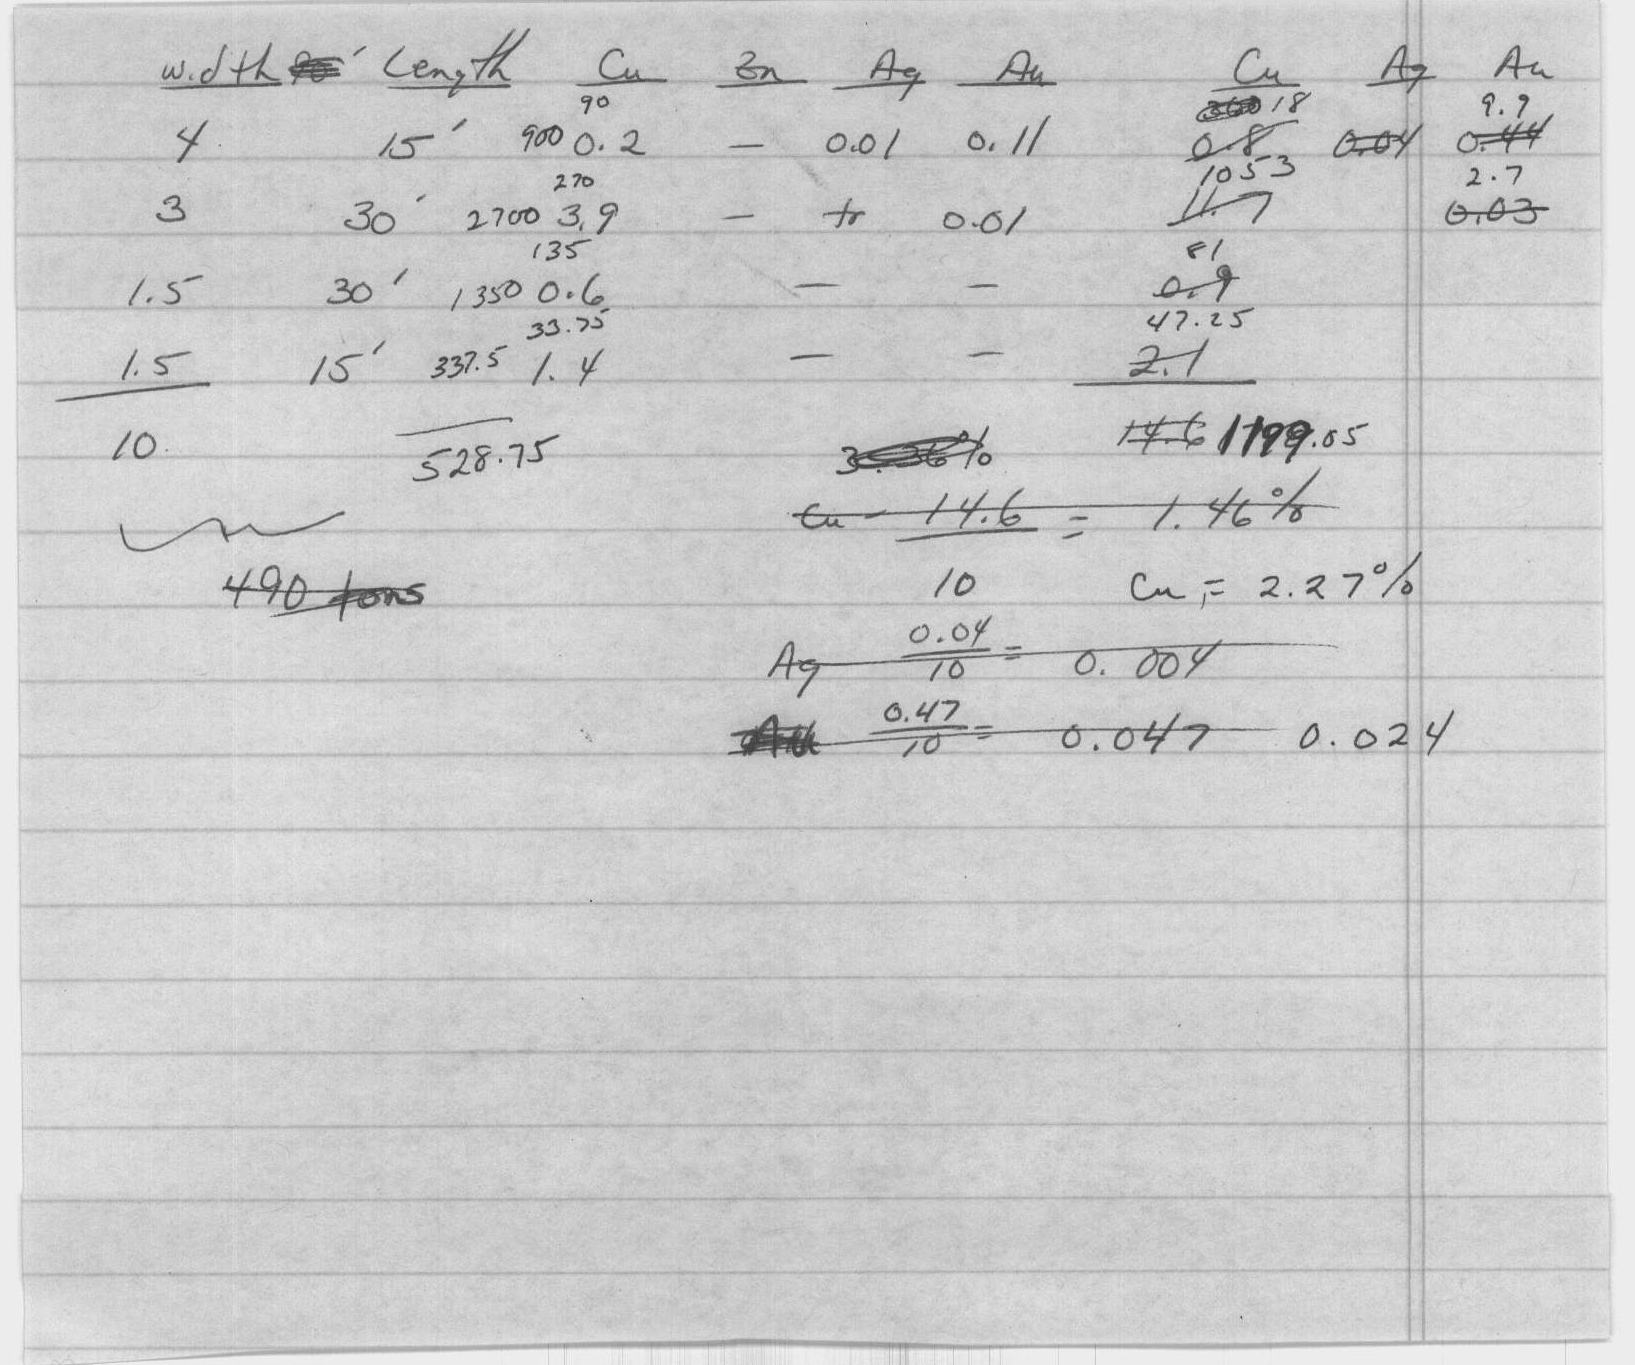 width 90' Length Cu Zn Ag Au Cu Ag Au
90 360 18 9.9
4 15' 900 0.2 — 0.01 0.11 0.8 0.04 0.44
270 1053 2.7
3 30' 2700 3.9 — tr 0.01 11.7 0.03
135 81
1.5 30' 1350 0.6 — — 0.9
33.75 47.25
1.5 15' 337.5 1.4 — — 2.1
10 528.75 14.6 1199.05
3.36%
Cu - 14.6 = 1.46%
490 tons 10 Cu = 2.27%
0.04
Ag 10 = 0.004
0.47
Au 10 = 0.047 0.024